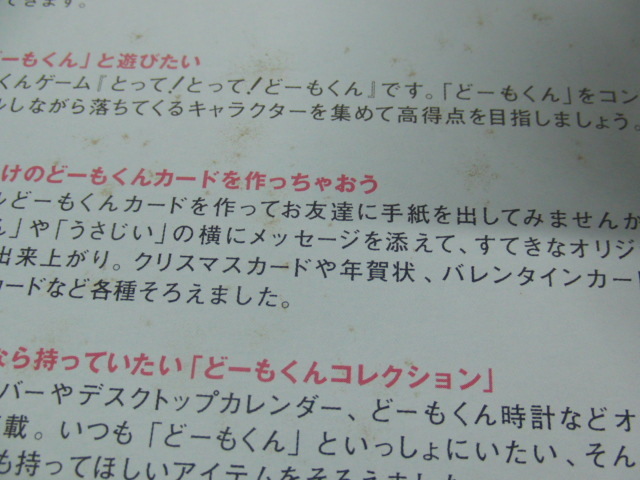 できます。
どーもくん」と遊びたい
くんゲーム『とって!とって!どーもくん』です。「どーもくん」をコン
ルしながら落ちてくるキャラクターを集めて高得点を目指しましょう。
けのどーもくんカードを作っちゃおう
ルどーもくんカードを作ってお友達に手紙を出してみませんか
ん」や「うさじい」の横にメッセージを添えて、すてきなオリジ
出来上がり。クリスマスカードや年賀状、バレンタインカー
カードなど各種そろえました。
なら持っていたい「どーもくんコレクション」
バーやデスクトップカレンダー、どーもくん時計などオ
載。いつも「どーもくん」といっしょにいたい、そん
も持ってほしいアイテムをそろえました